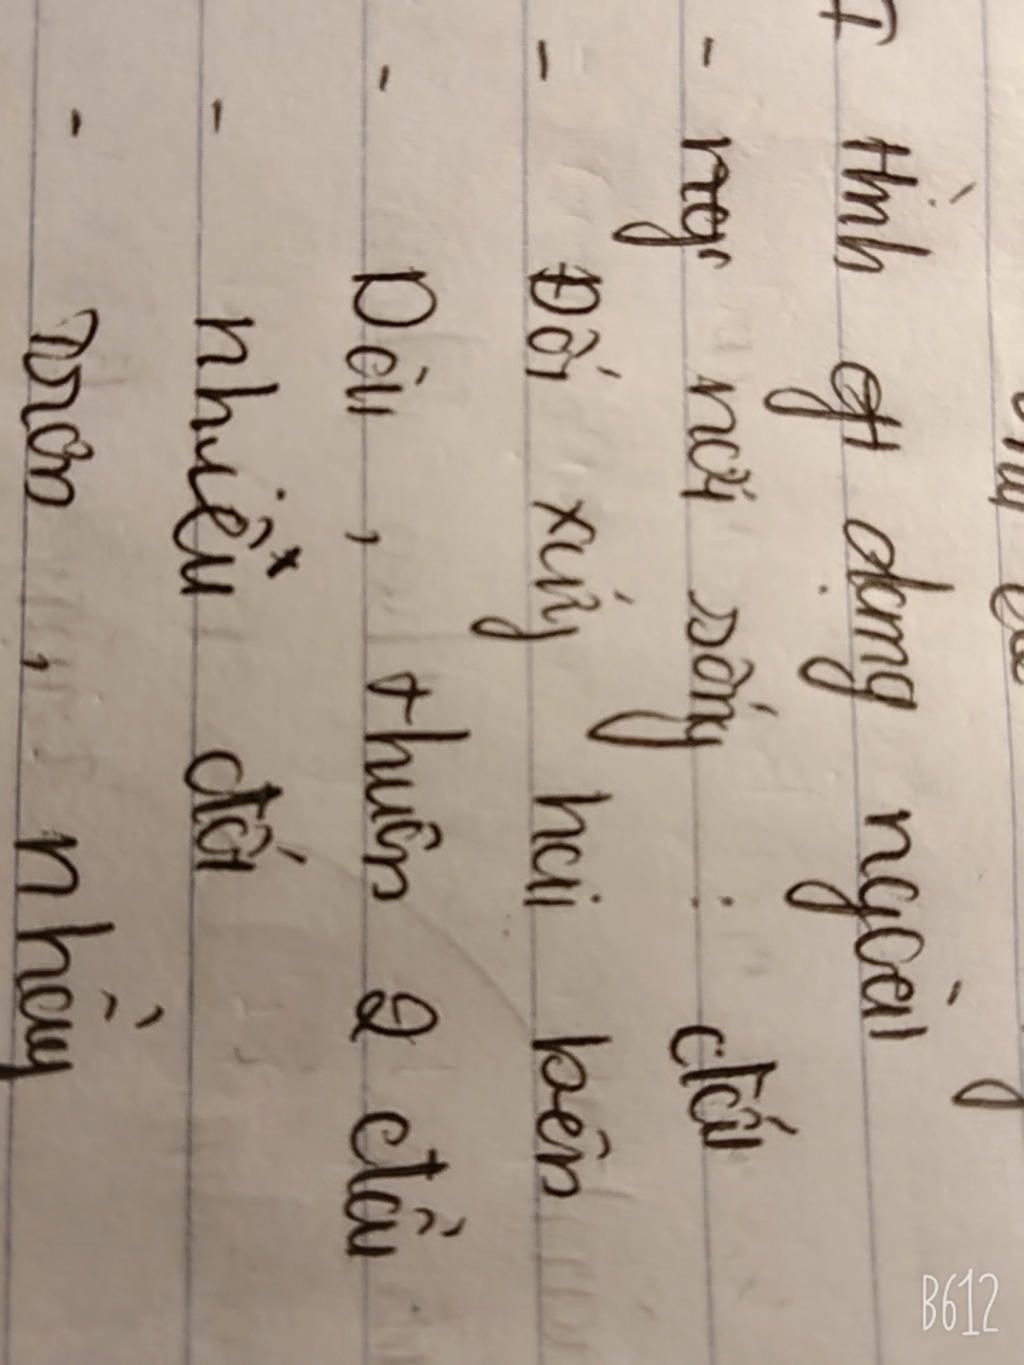 I Hình dạng ngoài
- nơi sống : đất
- Đối xứng hai bên
- Dài, thuôn 2 đầu
- nhiều đốt
- trơn, nhầy
B612